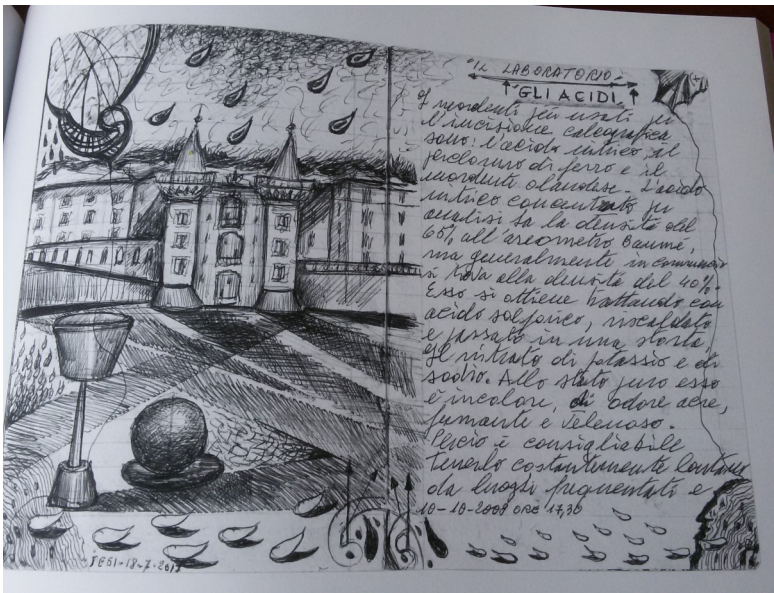 "IL LABORATORIO"
GLI ACIDI
I mordenti più usati per
l'incisione calcografica
sono: l'acido nitrico, il
percloruro di ferro e il
mordente olandese. L'acido
nitrico concentrato per
analisi ha la densità del
65% all'areometro Baumé,
ma generalmente in commercio
si trova alla densità del 40%.
Esso si ottiene trattando con
acido solforico, riscaldato
e passato in una storta,
il nitrato di potassio e di
sodio. Allo stato puro esso
è incolore, di odore acre,
fumante e velenoso.
Perciò è consigliabile
tenerlo costantemente lontano
da luoghi frequentati e
10-10-2008 ORE 17,30
JESI-18-7-2017